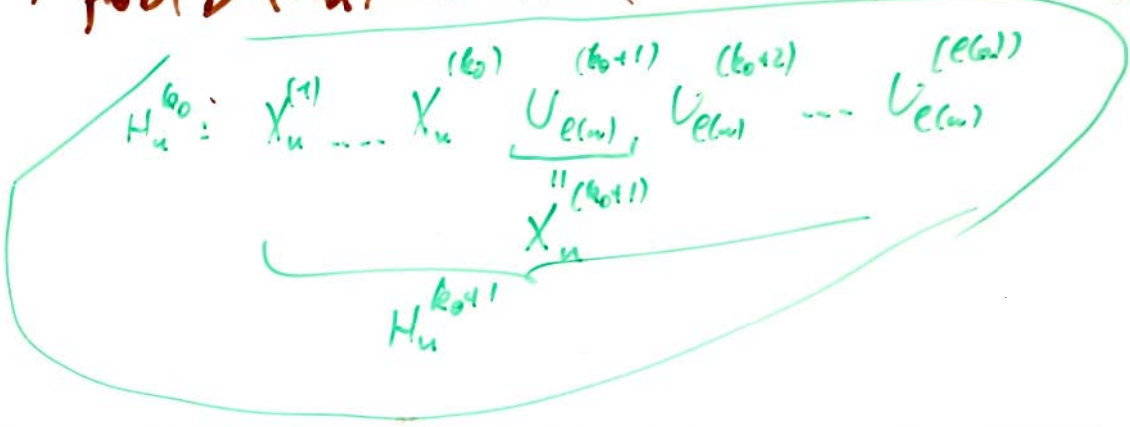 H_n^{k_0}: X_n^{(1)} .... X_n^{(k_0)} U_{e(n)}^{(k_0+1)}, U_{e(n)}^{(k_0+2)} ... U_{e(n)}^{(e(n))}
"
X_n^{(k_0+1)}
H_n^{k_0+1}